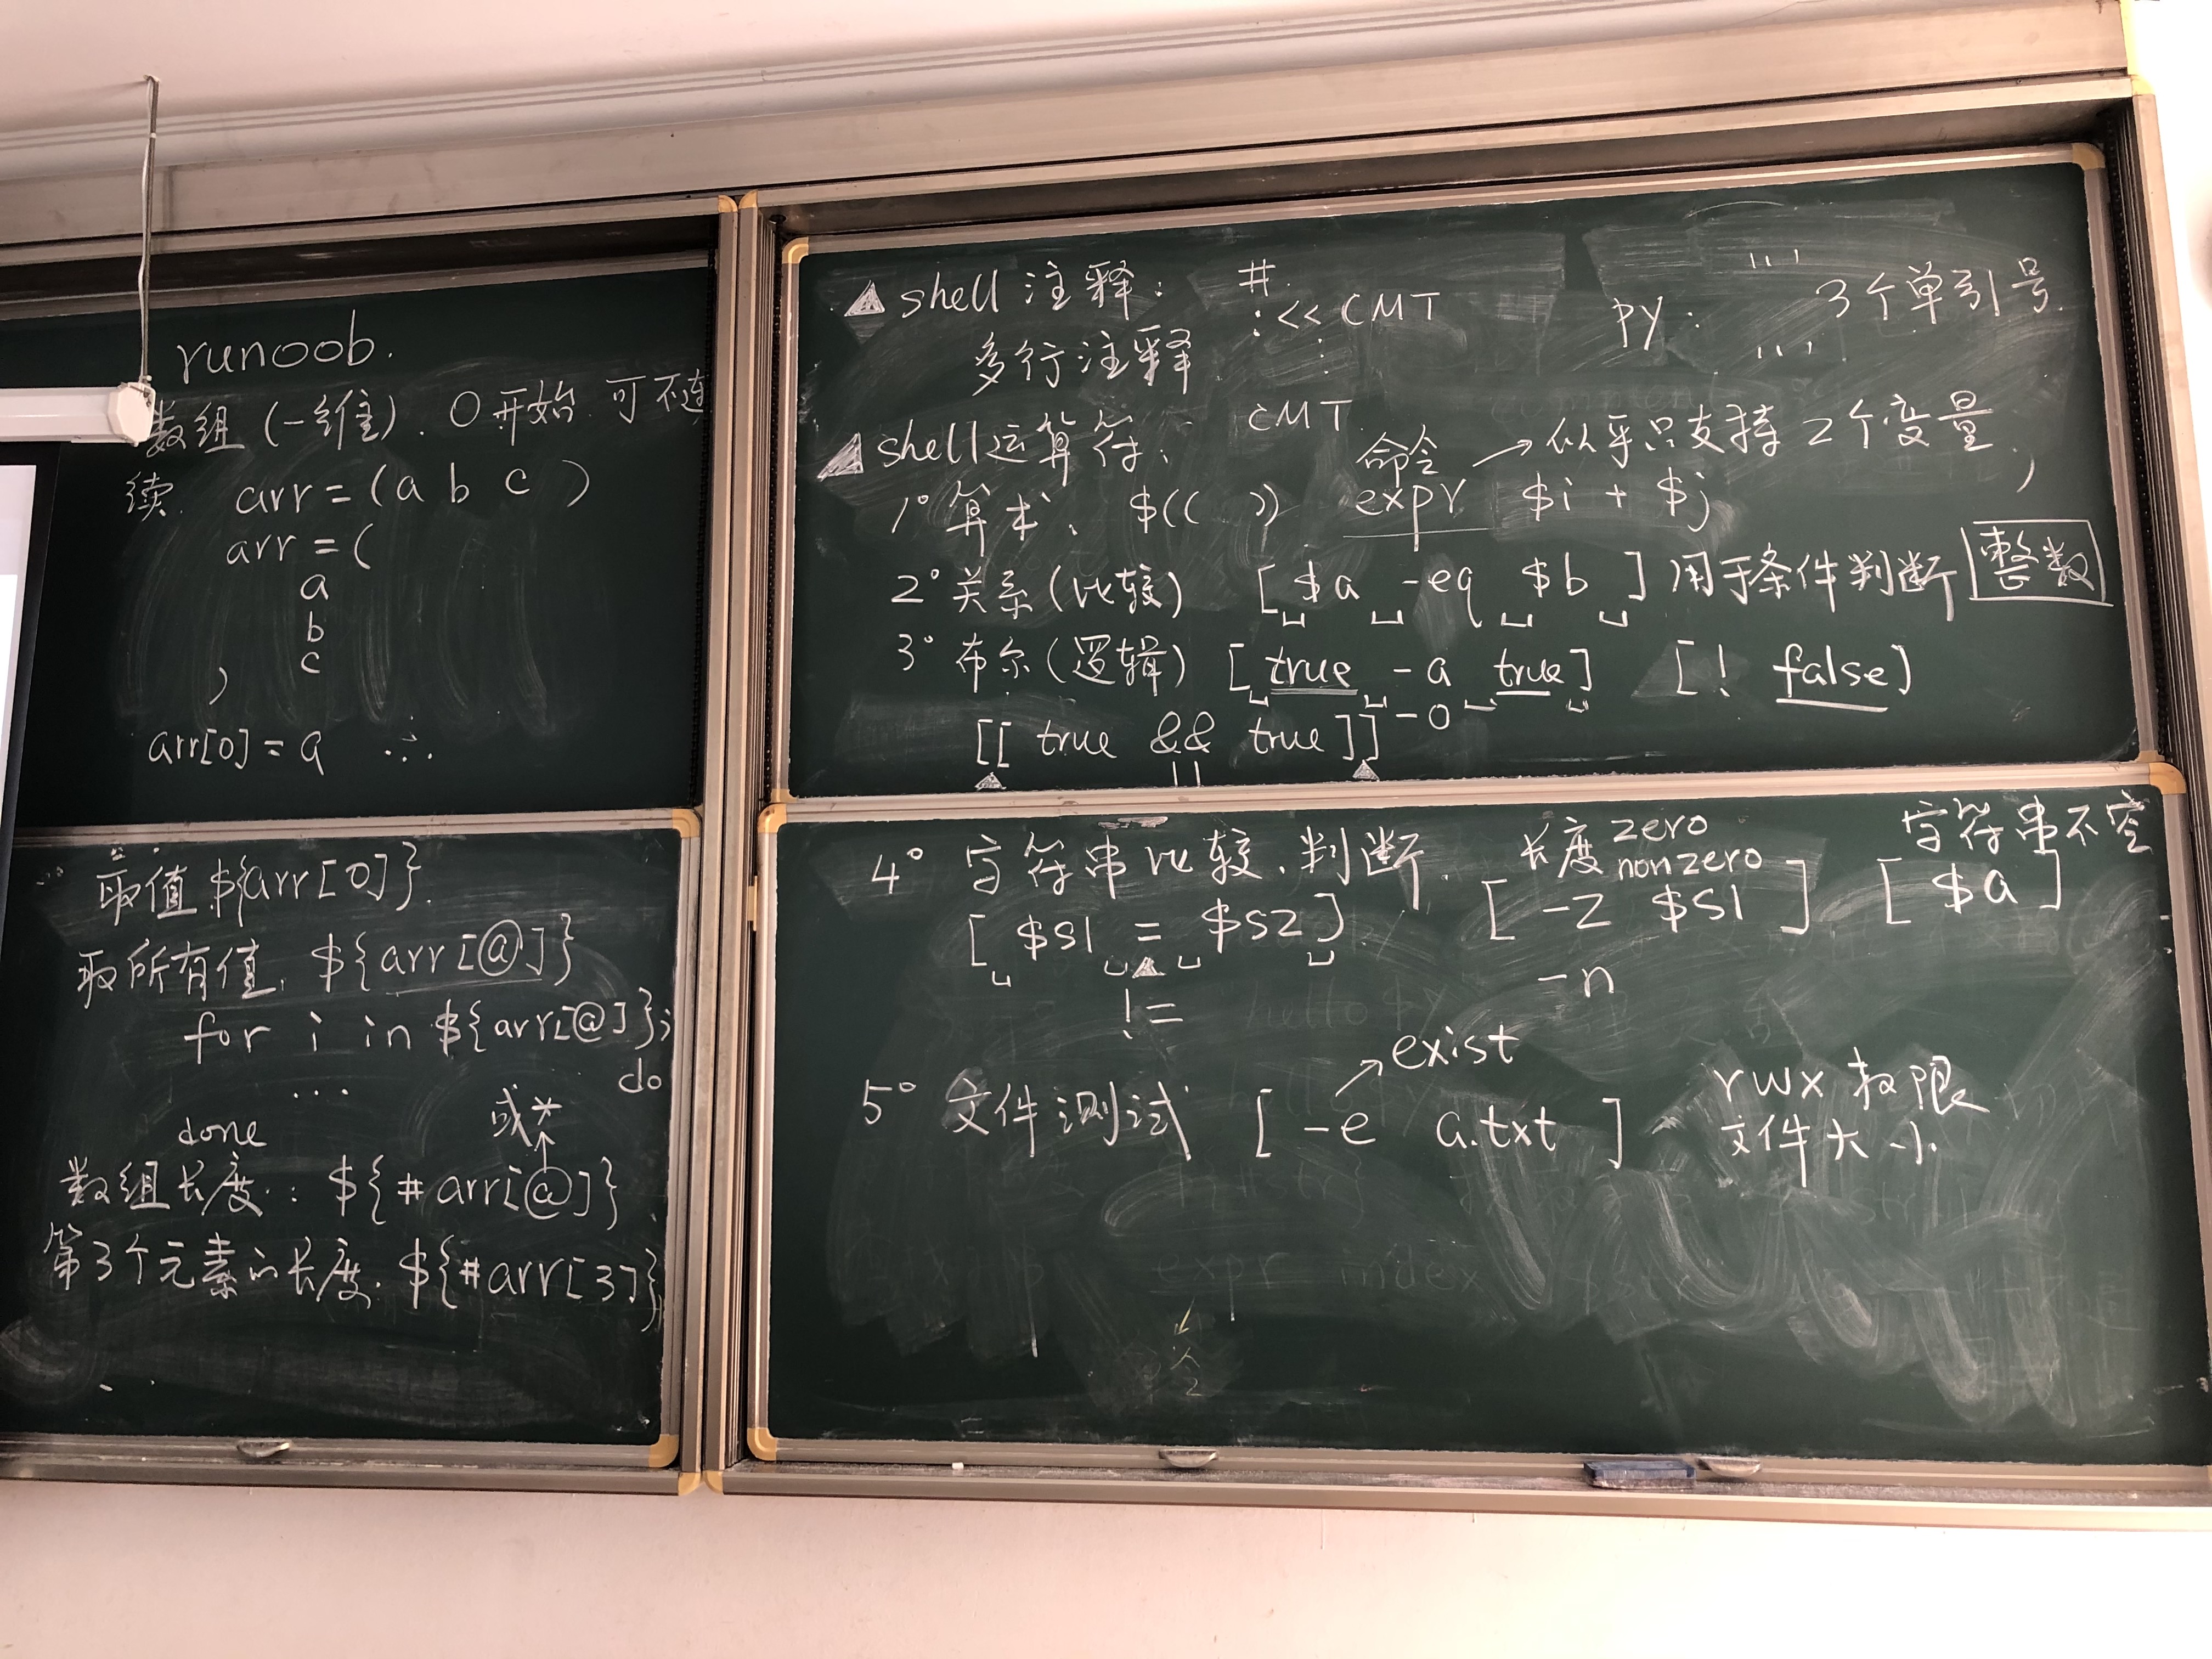 runoob.
数组 (一维). 0开始 可不连
续. arr = (a b c )
arr = (
a
b
c
)
arr[0] = a ...
取值 ${arr[0]}.
取所有值. ${arr[@]}
for i in ${arr[@]};
do
...
done
或*
数组长度: ${#arr[@]}
第3个元素的长度. ${#arr[3]}
shell 注释: #.
多行注释 :<< CMT
⋮
CMT
py: ''' 3个单引号
'''
shell运算符:
命令 → 似乎只支持 2个变量,
1° 算术. $(( )) expr $i + $j
2° 关系(比较) [ $a -eq $b ] 用于条件判断 整数
3° 布尔(逻辑) [ true -a true ] [! false]
-o
[[ true && true ]]
||
4° 字符串比较.判断. 长度 zero
nonzero
字符串不空
[ $s1 = $s2 ] [ -z $s1 ] [ $a ]
!= -n
exist
5° 文件测试 [ -e a.txt ] rwx 权限
文件大小